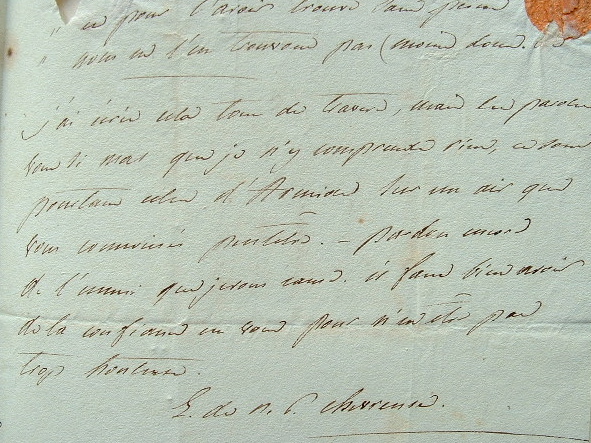 " en pour l'avoir trouvé sans
" nous ne l'en trouvons pas (moins dou
j'ai écris cela tout de travers, mais les paroles
vont si mal que je n'y comprends rien, ce sont
pourtant celles d'Armide sur un air que
vous connaissés peutetre. - pardon encore
de l'ennui que je vous cause. il faut bien avoir
de la confiance en vous pour n'en etre pas
trop honteuse.
E. de N. C. chevreuse.